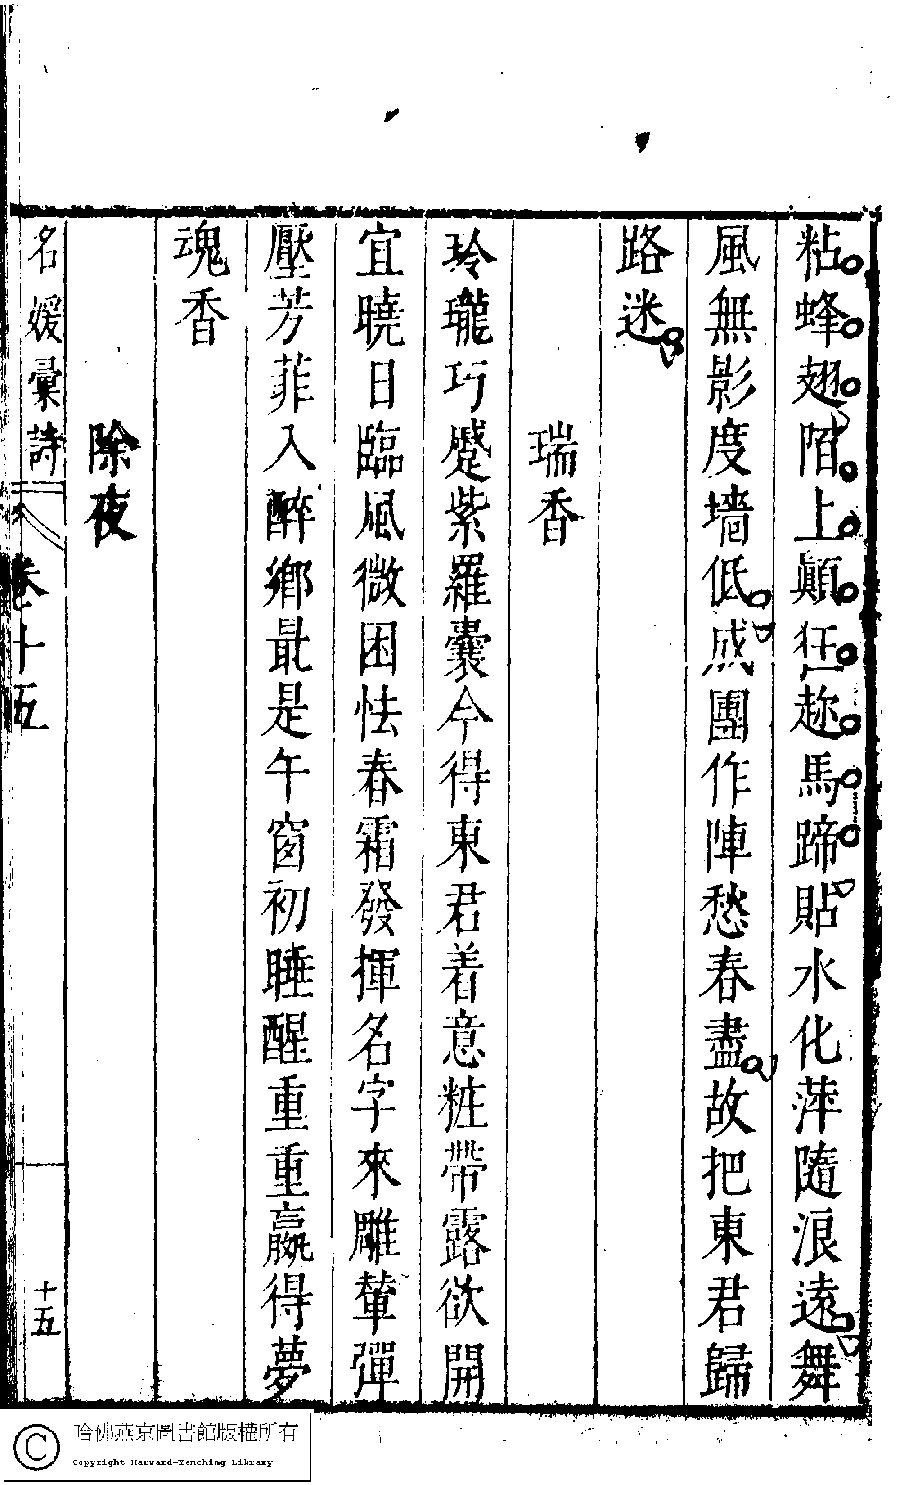 粘蜂翅陌上顛狂趂馬蹄貼水化萍隨浪遠舞
風無影度墻低成團作陣愁春盡故把東君歸
路迷
瑞香
玲瓏巧蹙紫羅囊今得東君着意粧帶露欲開
宜曉日臨風微困怯春霜發揮名字來雕輦彈
壓芳菲入醉鄉最是午窗初睡醒重重贏得夢
魂香
除夜
名媛彙詩
卷十五
十五
哈佛燕京圖書館版權所有
Copyright Harvard-Yenching Library